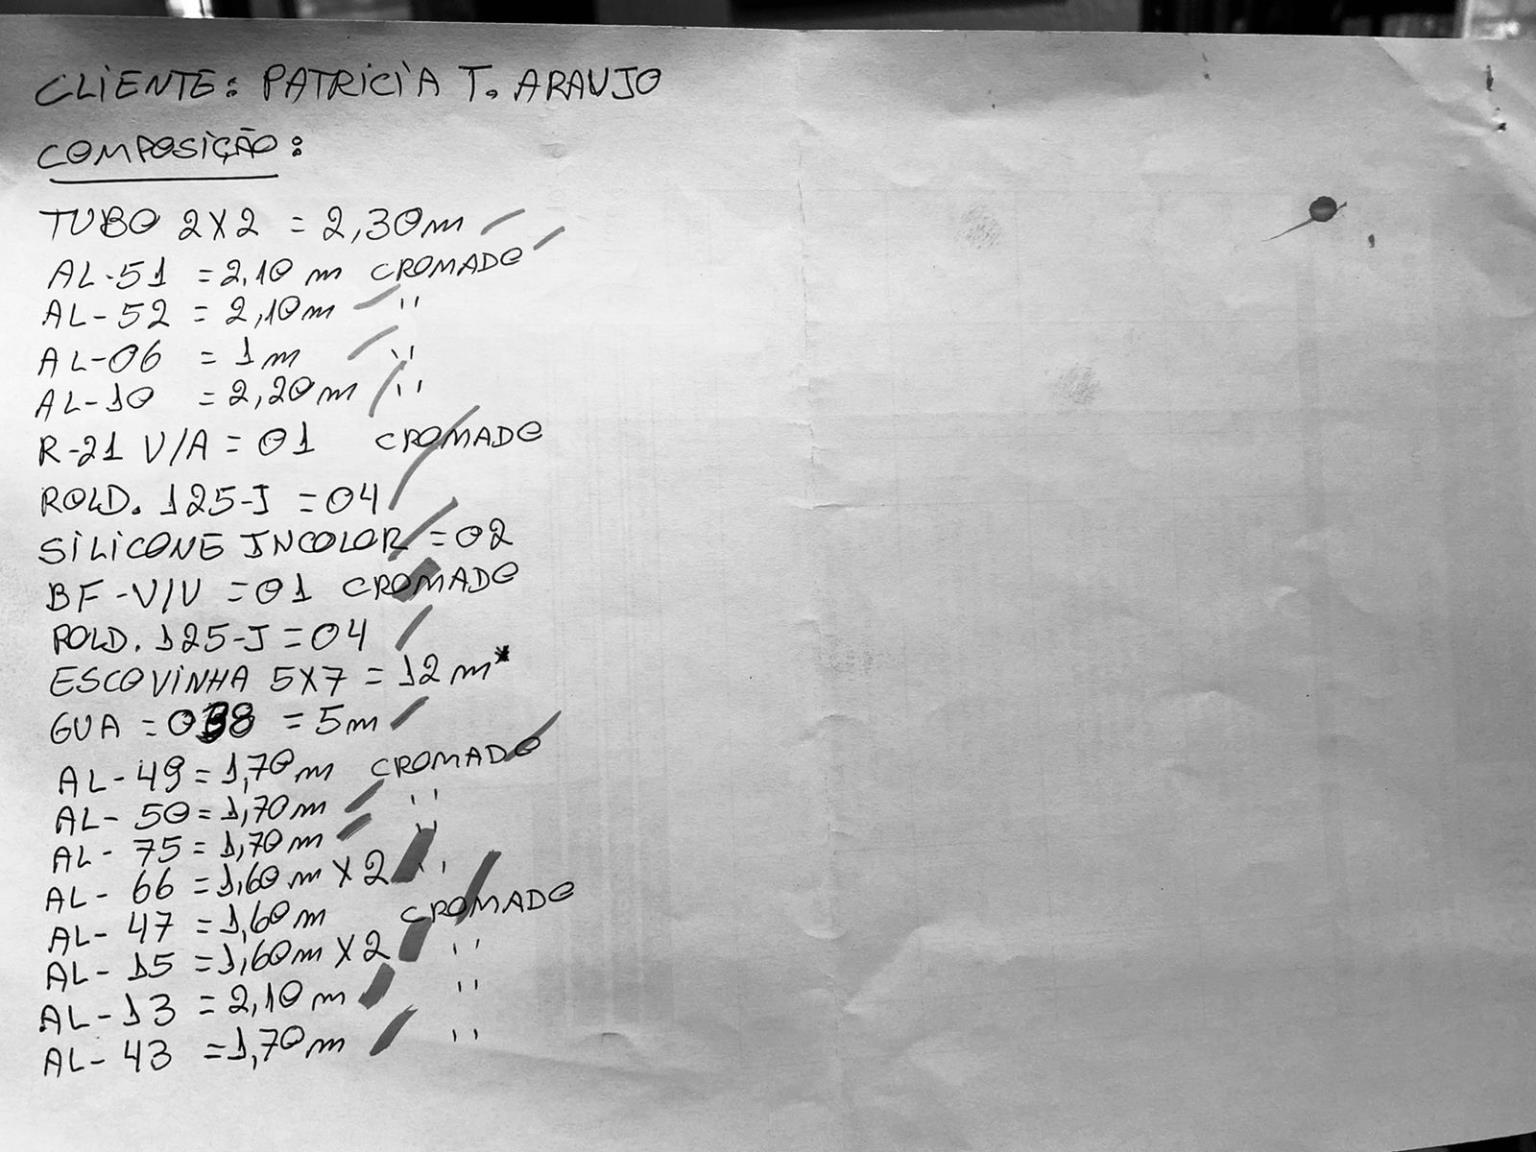 CLIENTE: PATRICIA T. ARAUJO
COMPOSIÇÃO:
TUBO 2X2 = 2,30m
AL-51 = 2,10 m CROMADO
AL-52 = 2,10m "
AL-06 = 1m "
AL-10 = 2,20m "
R-21 V/A = 01 CROMADO
ROLD. 125-J = 04
SILICONE INCOLOR = 02
BF-V/V = 01 CROMADO
ROLD. 125-J = 04
ESCOVINHA 5X7 = 12 m*
GUA = 038 = 5m
AL-49 = 1,70m CROMADO
AL-50 = 1,70m "
AL-75 = 1,70m "
AL-66 = 1,60m X 2 "
AL-47 = 1,60m CROMADO
AL-15 = 1,60m X 2 "
AL-13 = 2,10m "
AL-43 = 1,70m "